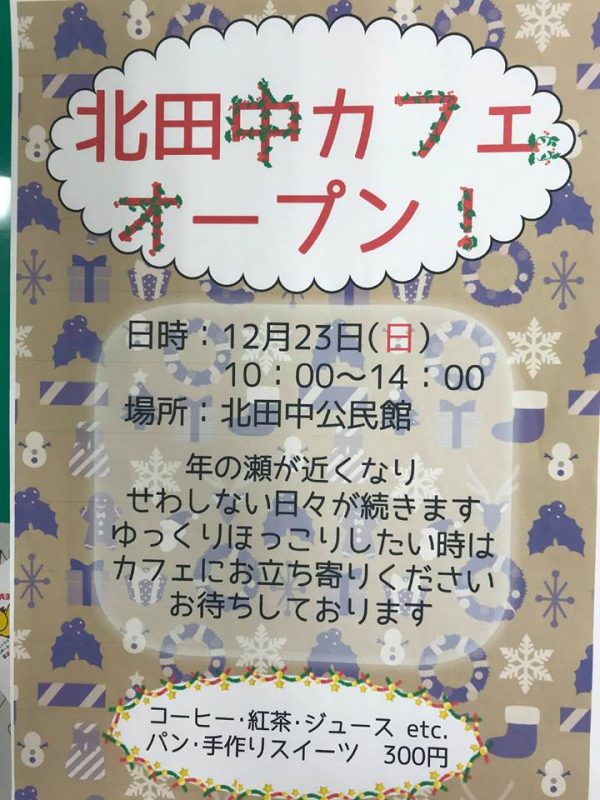 北田中カフェ
オープン!
日時:12月23日(日)
10:00～14:00
場所:北田中公民館
年の瀬が近くなり
せわしない日々が続きます
ゆっくりほっこりしたい時は
カフェにお立ち寄りください
お待ちしております
コーヒー・紅茶・ジュース etc.
パン・手作りスイーツ 300円